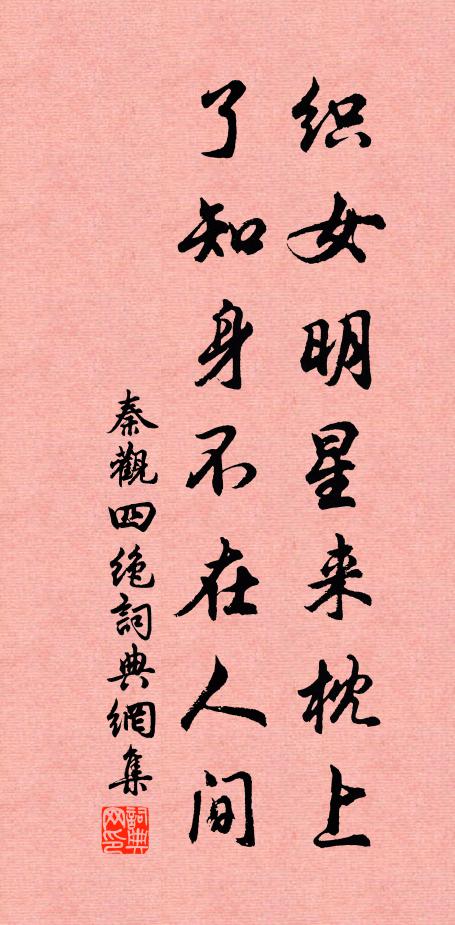 织女明星来枕上
了知身不在人间
秦觀四绝詞典網集
詞典网印